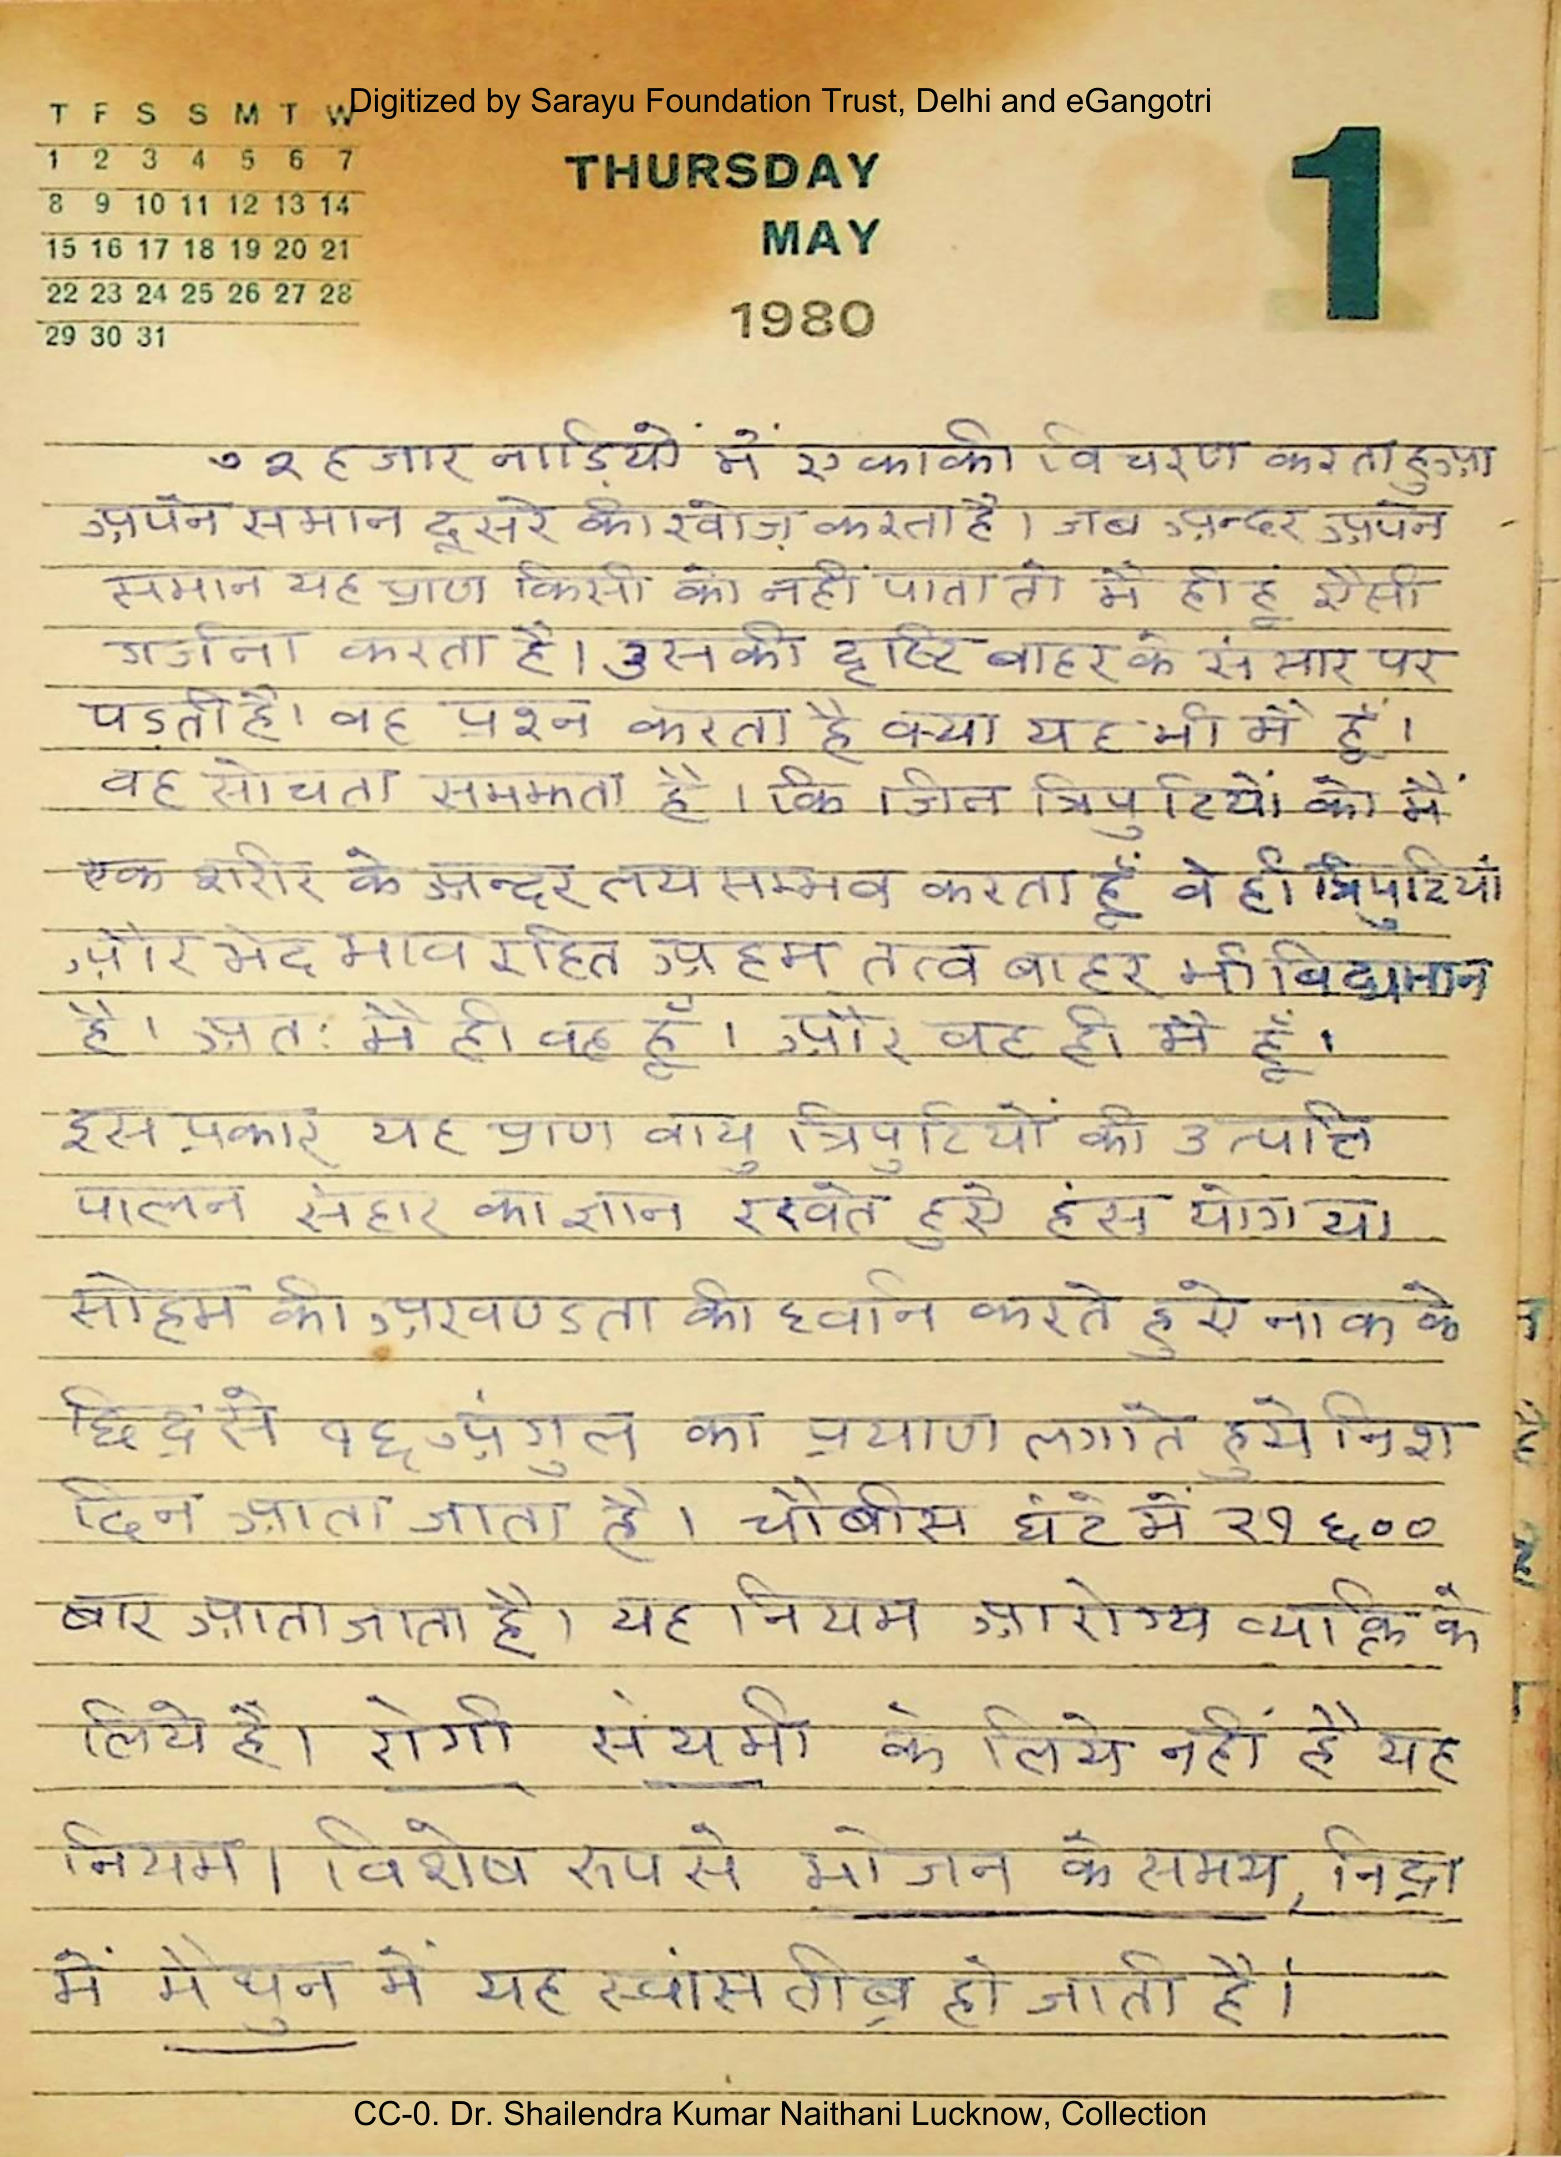 Digitized by Sarayu Foundation Trust, Delhi and eGangotri
T F S S M T W
1 2 3 4 5 6 7
8 9 10 11 12 13 14
15 16 17 18 19 20 21
22 23 24 25 26 27 28
29 30 31
THURSDAY
MAY
1980
1
७२ हजार नाड़ियों में एकाकी विचरण करता हुआ
अपने समान दूसरे की खोज़ करता है। जब अन्दर अपने
समान यह प्राण किसी को नहीं पाता तो मैं ही हूं ऐसी
गर्जना करता है। उसकी दृष्टि बाहर के संसार पर
पड़ती है। वह प्रश्न करता है क्या यह भी मैं हूँ।
वह सोचता समझता है। कि जिन त्रिपुटियों को मैं
एक शरीर के अन्दर लय सम्भव करता हूँ वे ही त्रिपुटियां
और भेद भाव रहित अहम् तत्व बाहर भी विद्यमान
है। अतः मैं ही वह हूँ। और वह ही मैं हूँ।
इस प्रकार यह प्राण वायु त्रिपुटियों की उत्पत्ति
पालन संहार का ज्ञान रखते हुऐ हंस योग या
सोहम की अखण्डता की ध्वनि करते हुऐ नाक के
छिद्र से १६ अंगुल का प्रयाण लगाते हुये निश
दिन आता जाता है। चौबीस घंटे में २१६००
बार आता जाता है। यह नियम आरोग्य व्यक्ति के
लिये है। रोगी संयमी के लिये नहीं है यह
नियम। विशेष रुप से भोजन के समय, निद्रा
में मैथुन में यह स्वांस तीब्र हो जाती है।
CC-0. Dr. Shailendra Kumar Naithani Lucknow, Collection